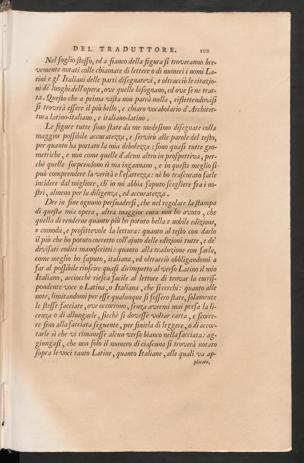 DEL TRADUTTORE.
Nel foglio stesso, ed a fianco della figura si troveranno bre-
vemente notati colle chiamate di lettere o di numeri i nomi La-
tini e gl' Italiani delle parti disegnatevi, e oltracciò le citazio-
ni de' luoghi dell'opera, ove quelle bisognano, ed ove se ne trat-
ta. Questo che a prima vista non parrà nulla, riflettendovisi
si troverà essere il più bello, e chiaro vocabolario d'Architet-
tura latino-italiano, e italiano-latino.
Le figure tutte sono state da me medesimo disegnate colla
maggior possibile accuratezza, e servire alle parole del testo,
per quanto ha portato la mia debolezza: sono quasi tutte geo-
metriche, e non come quelle d'alcun altro in prospettiva, per-
chè quelle sorprendono sì ma ingannano, e in queste meglio si
può comprendere la verità e l'esattezza: nè ho trascurato farle
incidere dal migliore, chi in mi abbia saputo scegliere fra i no-
stri, almeno per la diligenza, ed accuratezza.
Dee in fine ognuno persuadersi, che nel regolare la stampa
di questa mia opera, altra maggior cura non ho avuto, che
quella di renderne quanto più ho potuto bella e nobile edizione,
e comoda, e profittevole la lettura: quanto al testo con darlo
il più che ho potuto corretto coll'ajuto delle edizioni tutte, e de'
divisati codici manoscritti: quanto alla traduzione con farla,
come meglio ho saputo, italiana, ed oltracciò obbligandomi a
far al possibile riuscire quasi dirimpetto al verso Latino il mio
Italiano, acciocchè riesca facile al lettore di trovar la corris-
pondente voce o Latina, o Italiana, che si cerchi: quanto alle
note, limitandomi per esse qualunque si fossero state, solamente
le stesse facciate, ove occorrono, senza avermi mai presa la li-
cenza o di allungarle, sicchè si dovesse voltar carta, e scorre-
re sino alla facciata seguente, per finirla di leggere, o di accor-
tarle sì che vi rimanesse alcun verso bianco nella facciata: ag-
giungasi, che non solo il numero di ciascuna si troverà notato
sopra le voci tanto Latine, quanto Italiane, alle quali va ap-
plicato,